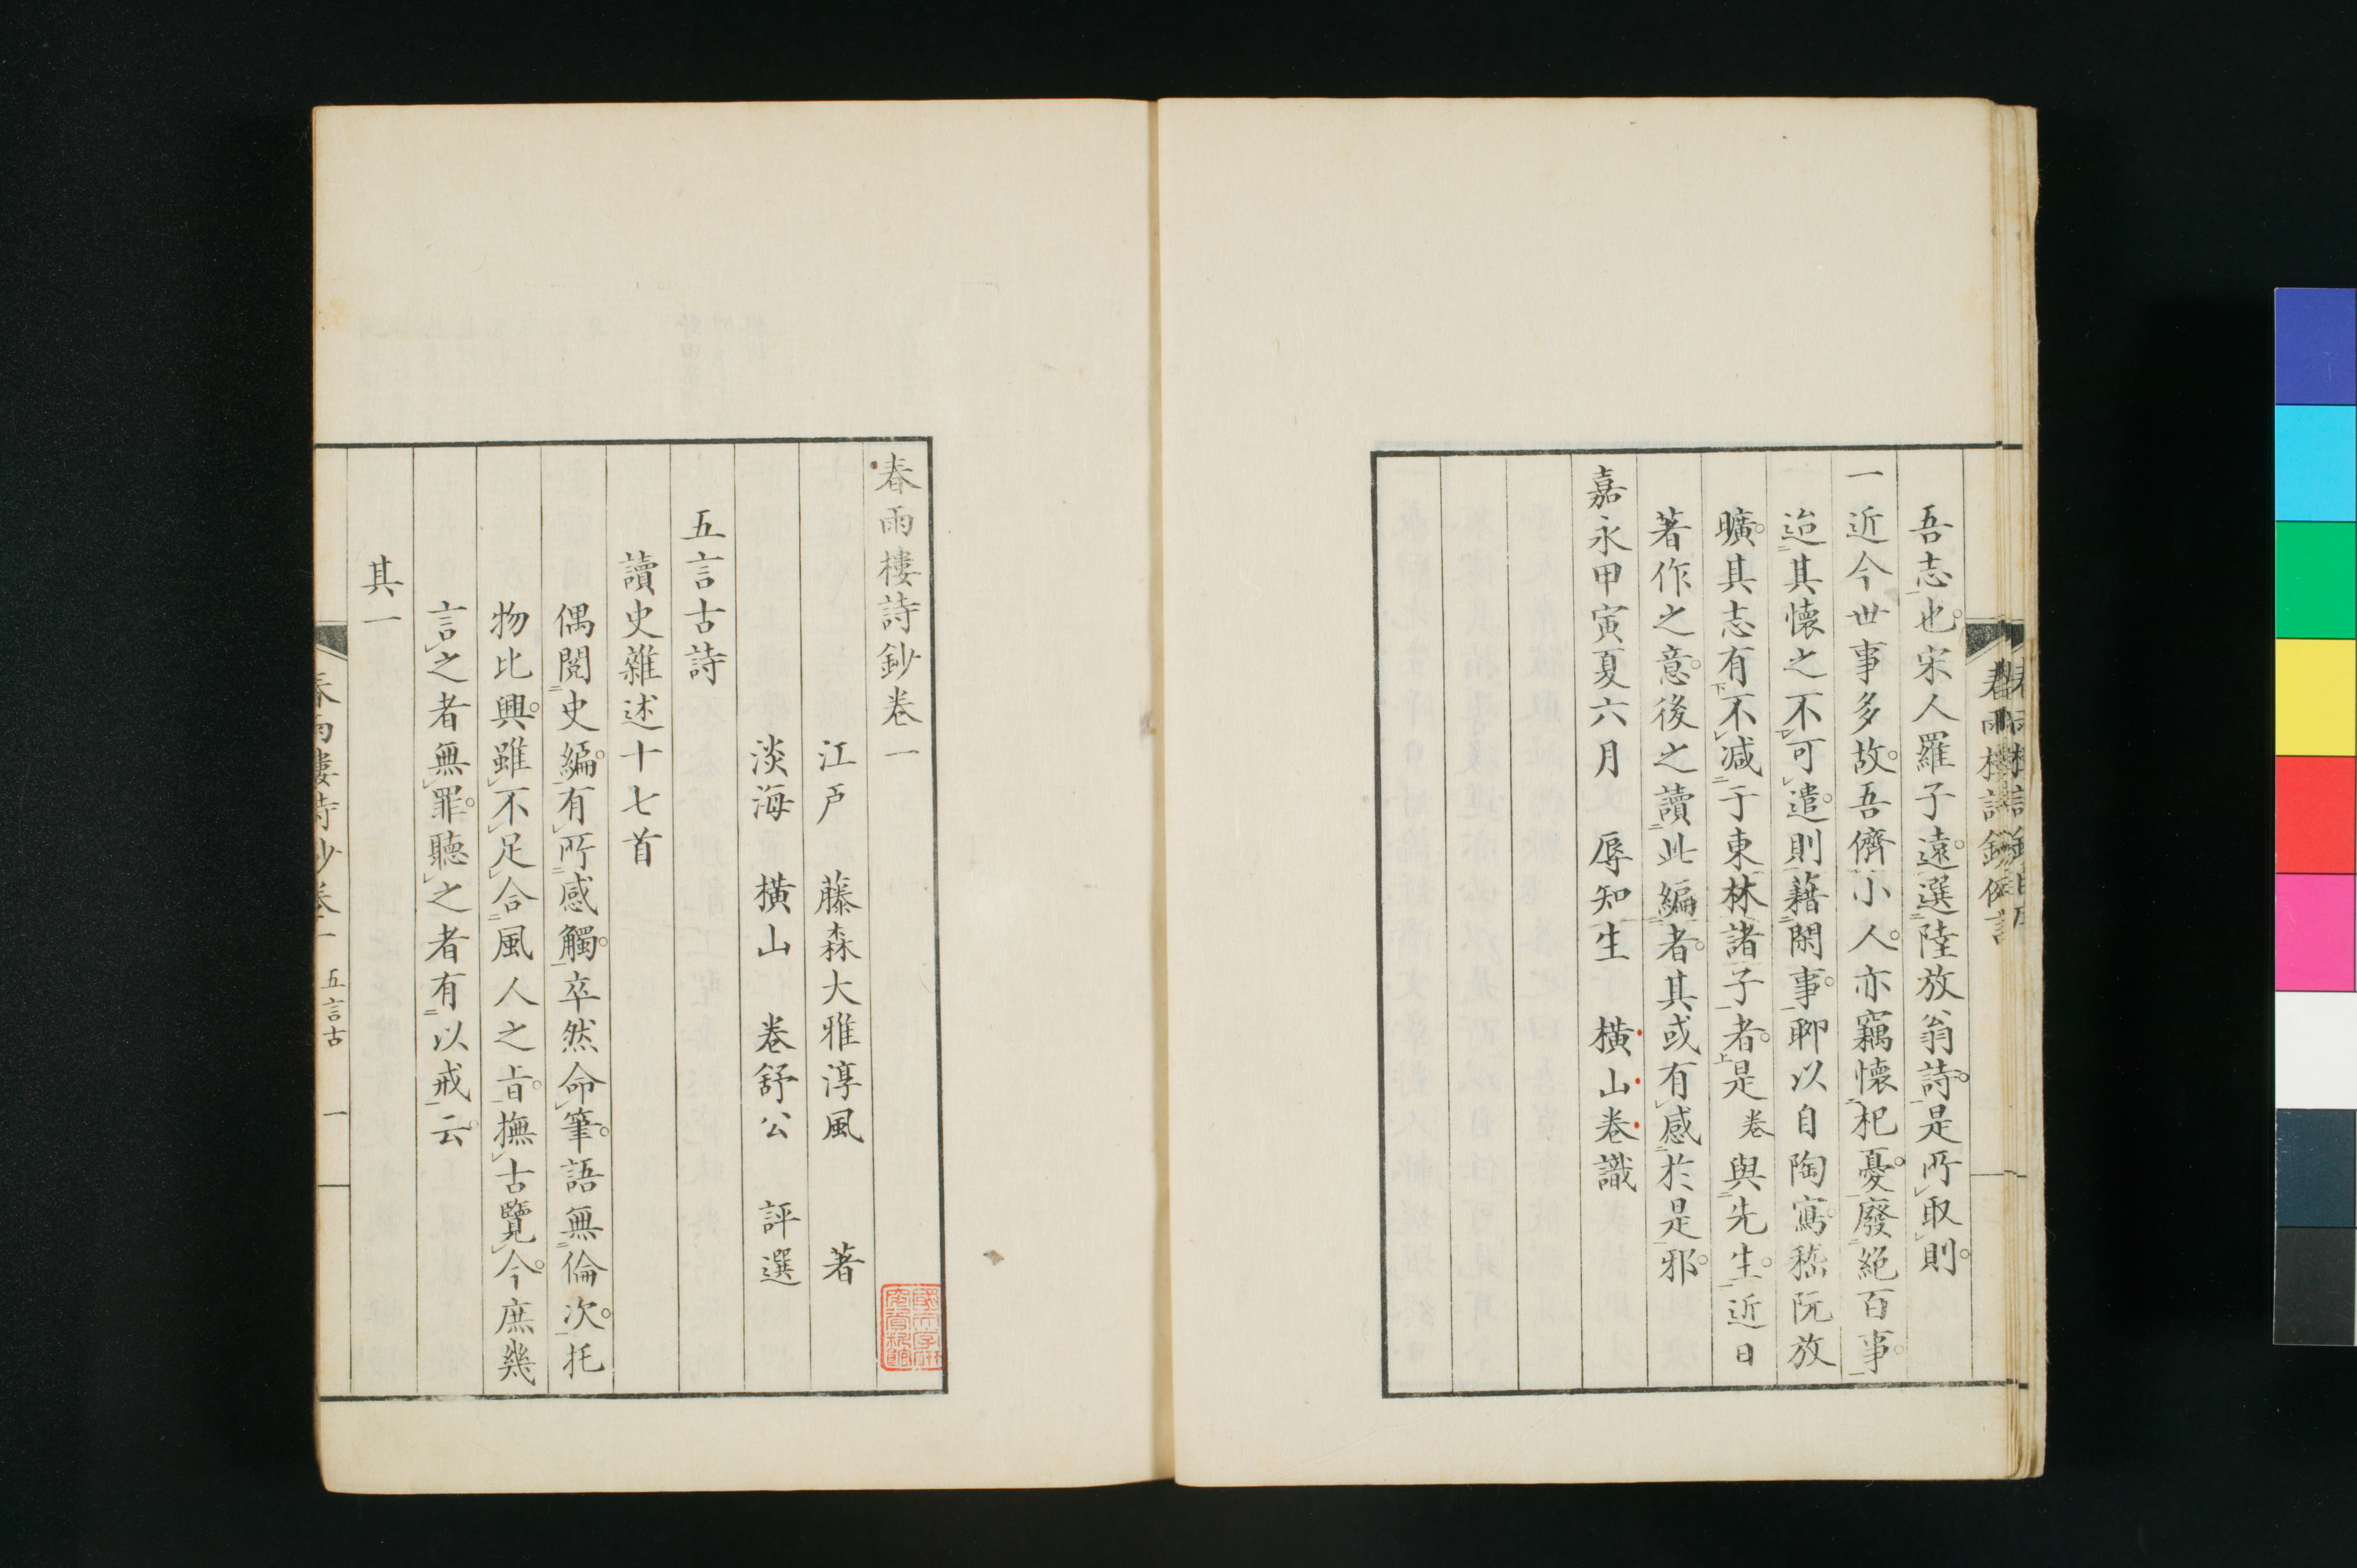 吾志也。宋人羅子遠。選陸放翁詩。是所取則。
一近今世事多故。吾儕小人。亦竊懷杞憂。廢絕百事。
迨其懷之不可遣。則藉閑事。聊以自陶寫。嵇阮放
曠。其志有不減于東林諸子者。是卷與先生。近日
著作之意。後之讀此編者。其或有感於是邪。
嘉永甲寅夏六月　辱知生　橫山卷識
春雨樓詩鈔例言
春雨樓詩鈔卷一
江戶　藤森大雅淳風　著
淡海　橫山　卷舒公　評選
五言古詩
讀史雜述十七首
偶閱史編。有所感觸。卒然命筆。語無倫次。托
物比興。雖不足合風人之旨。撫古覽今。庶幾
言之者無罪。聽之者有以戒云。
其一
春雨樓詩鈔卷一　五言古　一